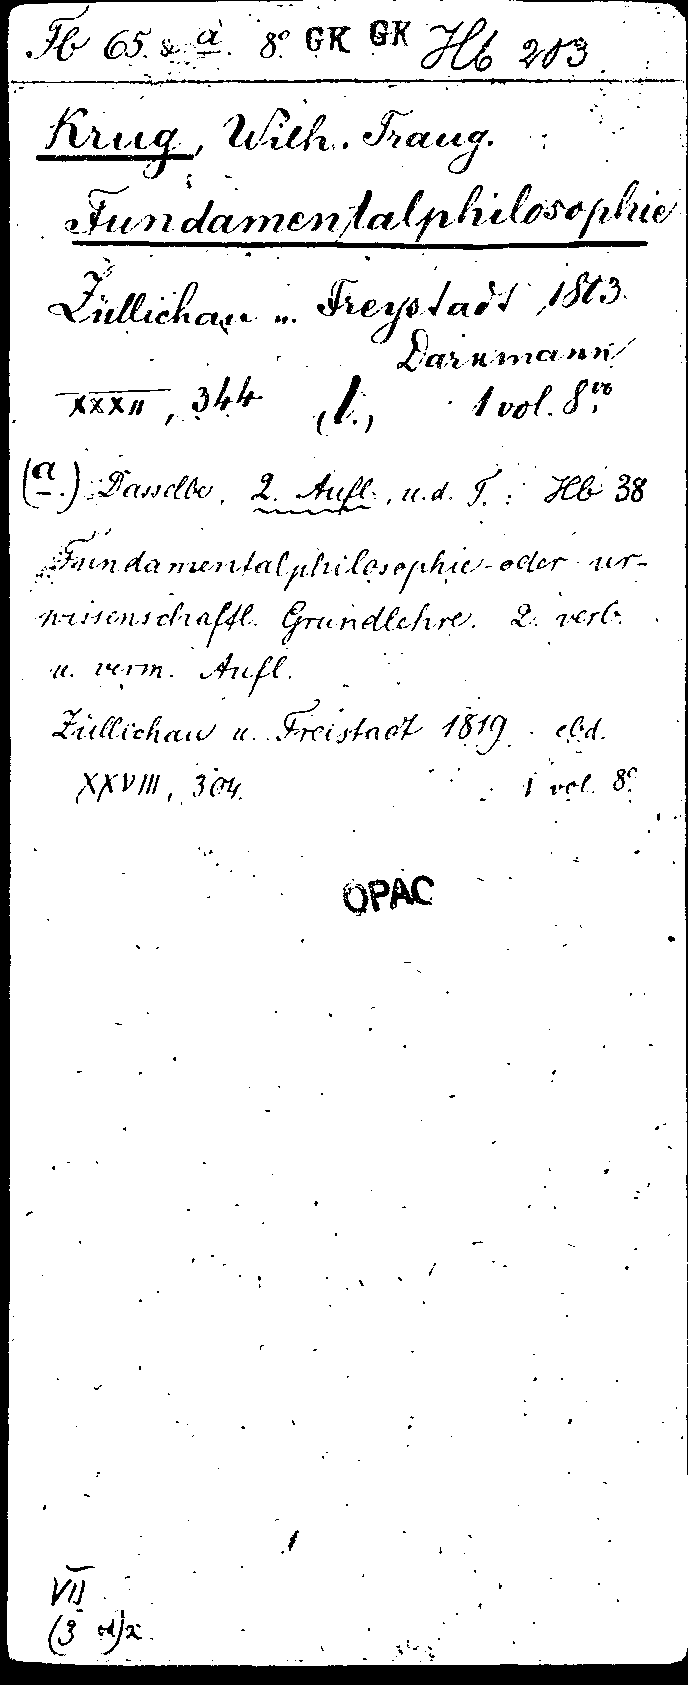 Fb 65. & a. 8° GK GK Hb 203
Krug, Wilh. Traug.
Fundamentalphilosophie
Züllichau u. Freystadt 1803.
Darnmann
XXXII, 344 (1.) 1 vol. 8vo
(a.) Dasselbe, 2. Aufl., u. d. T.: Hb 38
Fundamentalphilosophie oder ur-
wissenschaftl. Grundlehre. 2. verb.
u. verm. Aufl.
Züllichau u. Freistadt 1819. ebd.
XXVIII, 304. 1 vol. 8°
OPAC
VII